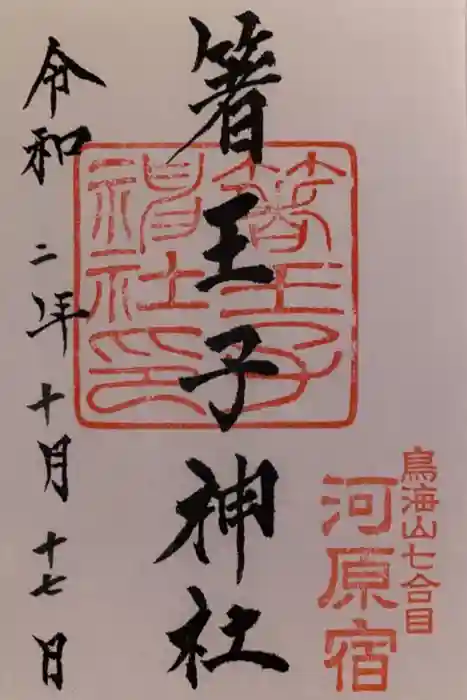 鳥海山七合目
河原宿
箸王子神社
箸王子神社印
令和二年十月十七日